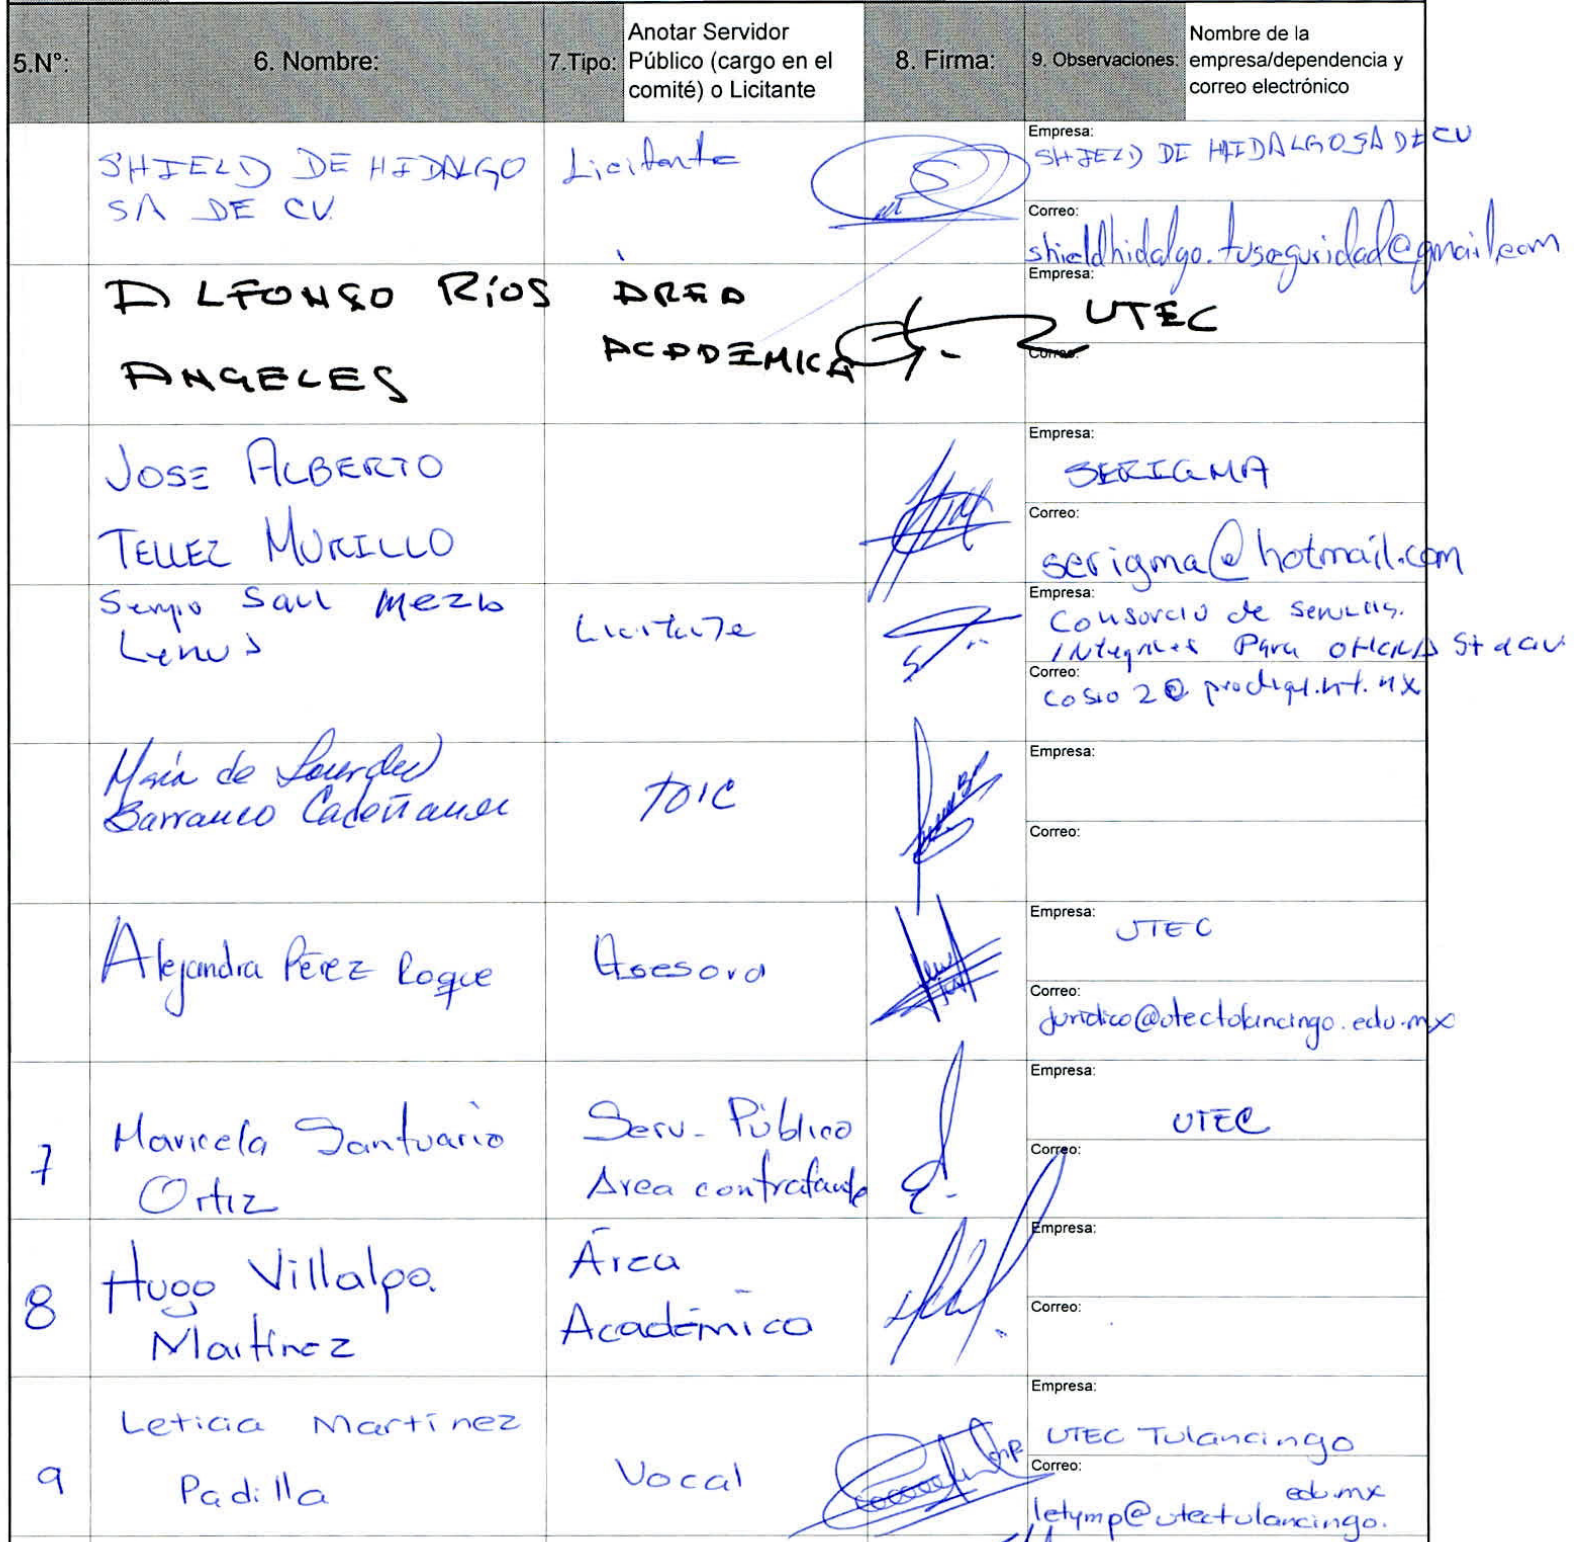 5.N°:
6. Nombre:
7.Tipo:
Anotar Servidor
Público (cargo en el
comité) o Licitante
8. Firma:
9. Observaciones:
Nombre de la
empresa/dependencia y
correo electrónico
SHIELD DE HIDALGO
SA DE CV.
Licitante
Empresa:
SHIELD DE HIDALGO SA DE CV
Correo:
shieldhidalgo.tuseguridad@gmail.com
ALFONSO RÍOS
ANGELES
AREA
ACADEMICA
Empresa:
UTEC
Correo:
JOSE ALBERTO
TELLEZ MURILLO
Empresa:
SERIGMA
Correo:
serigma@hotmail.com
Saul
Licitante
Empresa:
Consorcio de
Para
Correo:
María de Lourdes
Barranco
TOIC
Empresa:
Correo:
Alejandra Pérez Roque
Asesora
Empresa:
UTEC
Correo:
juridico@utectulancingo.edu.mx
7
Maricela Santuario
Ortiz
Serv. Público
Area contratante
Empresa:
UTEC
Correo:
8
Hugo Villalpa.
Martínez
Área
Académica
Empresa:
Correo:
9
Leticia Martínez
Padilla
Vocal
Empresa:
UTEC Tulancingo
Correo:
edu.mx
letymp@utectulancingo.